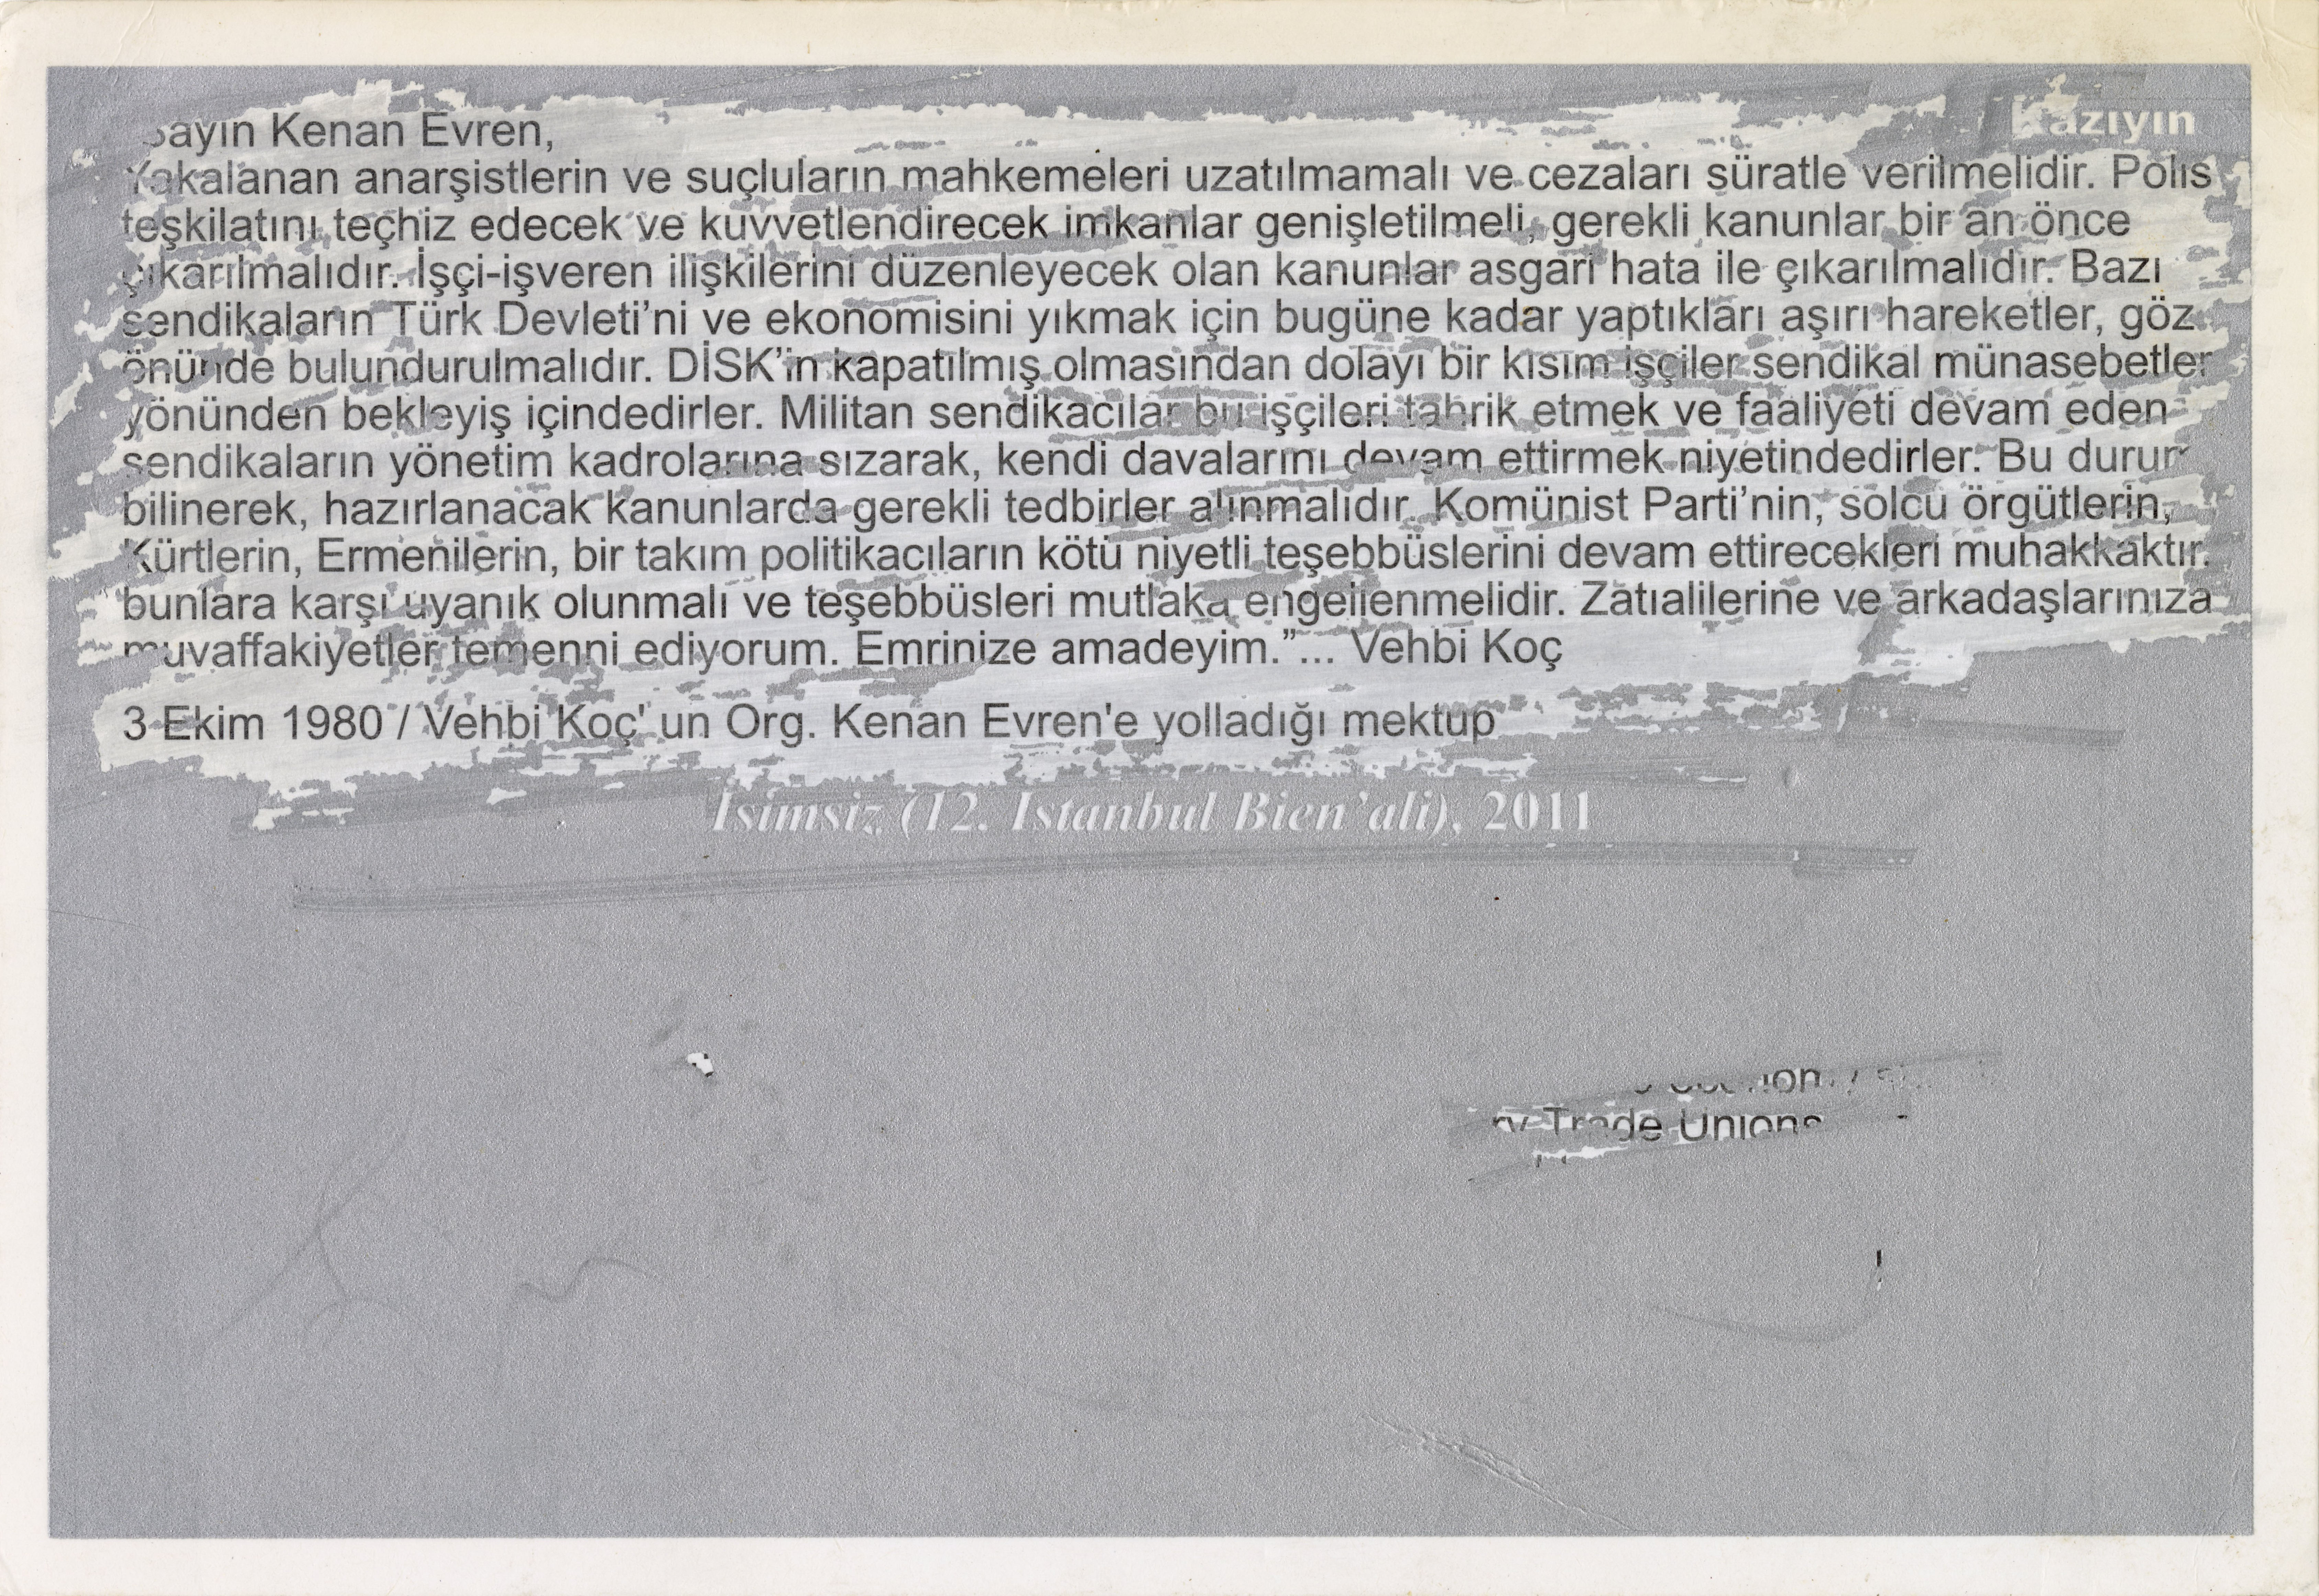 Kazıyın
Sayın Kenan Evren,
Yakalanan anarşistlerin ve suçluların mahkemeleri uzatılmamalı ve cezaları süratle verilmelidir. Polis
teşkilatını teçhiz edecek ve kuvvetlendirecek imkanlar genişletilmeli, gerekli kanunlar bir an önce
çıkarılmalıdır. İşçi-işveren ilişkilerini düzenleyecek olan kanunlar asgari hata ile çıkarılmalıdır. Bazı
sendikaların Türk Devleti’ni ve ekonomisini yıkmak için bugüne kadar yaptıkları aşırı hareketler, göz
önünde bulundurulmalıdır. DİSK’in kapatılmış olmasından dolayı bir kısım işçiler sendikal münasebetler
yönünden bekleyiş içindedirler. Militan sendikacılar bu işçileri tahrik etmek ve faaliyeti devam eden
sendikaların yönetim kadrolarına sızarak, kendi davalarını devam ettirmek niyetindedirler. Bu durum
bilinerek, hazırlanacak kanunlarda gerekli tedbirler alınmalıdır. Komünist Parti’nin, solcu örgütlerin,
Kürtlerin, Ermenilerin, bir takım politikacıların kötü niyetli teşebbüslerini devam ettirecekleri muhakkaktır.
bunlara karşı uyanık olunmalı ve teşebbüsleri mutlaka engellenmelidir. Zatıalilerine ve arkadaşlarınıza
muvaffakiyetler temenni ediyorum. Emrinize amadeyim.”... Vehbi Koç
3 Ekim 1980 / Vehbi Koç' un Org. Kenan Evren'e yolladığı mektup
İsimsiz (12. Istanbul Bien’ali), 2011
Trade Unions